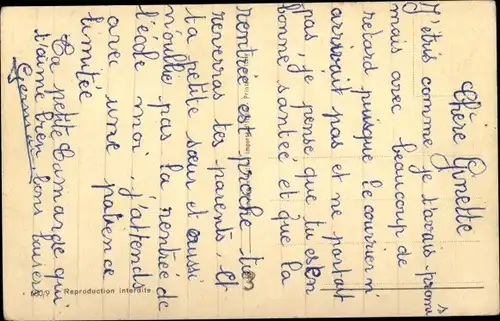 Chère Ginette
J'étris comme je t'avais promis
mais avec beaucoup de
retard puisque le courrier n'
arrivait pas et ne partait
pas, je pense que tu es en
bonne santée et que la
rentrée est proche tu
reverras tes parents, et
ta petite sœur et aussi
n'oublie pas la rentrée de
l'école moi, j'attends
avec une patience
limitée
Ta petite Camarde qui
t'aime bien bons baisers
Reproduction interdite